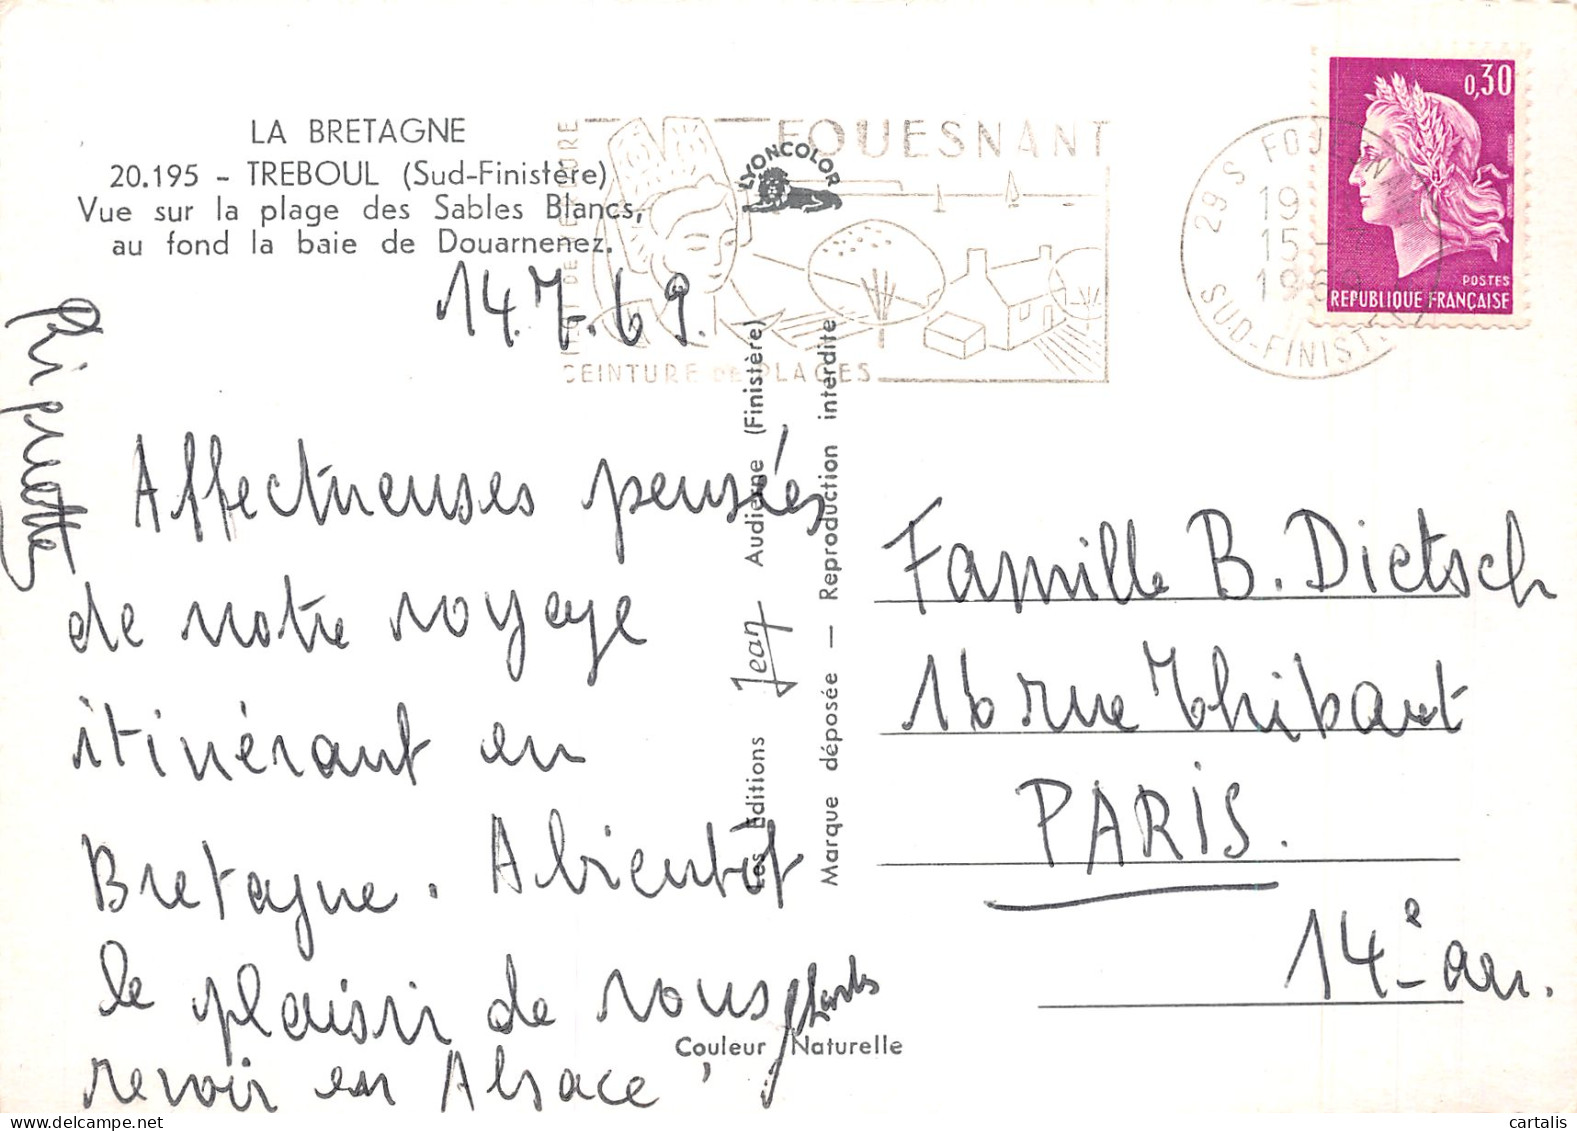 LA BRETAGNE
20.195 - TREBOUL (Sud-Finistère)
Vue sur la plage des Sables Blancs,
au fond la baie de Douarnenez.
14.7.69.
Affectueuses pensées
de notre voyage
itinérant en
Bretagne. A bientôt
le plaisir de vous
revoir en Alsace
Charles
FOUESNANT
CEINTURE DE PLAGES
LYONCOLOR
Les Editions Jean Audierne (Finistère)
Marque déposée — Reproduction interdite
Couleur Naturelle
29 S FOUESNANT
19
15-7
1969
SUD-FINISTÈRE
0,30
POSTES
REPUBLIQUE FRANÇAISE
Famille B. Dietsch
16 rue Thibaut
PARIS.
14e arr.
cartalis